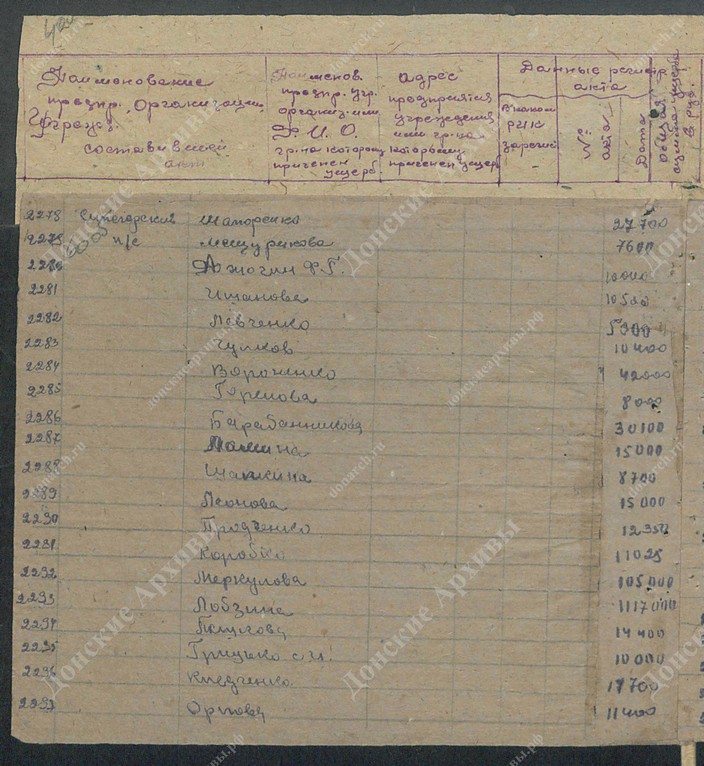 Наименование
предпр. Организации
Учрежд.
составившей
акт
Наименов.
предпр. учр.
организ. или
Ф.И.О.
гр-на которому
причинен
ущерб.
адрес
предприятия
учреждения
или гр-на
которому
причинен ущерб
Данные регистр.
акта
В каком
РИК
зарегис.
№
акта
Дата
общая
сумма ущерба
в руб.
2278 Шапоренко 27700
2279 п/с Мещурикова 7600
2280 Ажогин Ф.Г. 10000
2281 10500
2282 Левченко 5300
2283 Чулков 10400
2284 Вороненко 42000
2285 Горелова 8000
2286 Барабанникова 30100
2287 15000
2288 Шапкина 8700
2289 Леонова 15000
2290 Продченко 12350
2291 Коробко 11025
2292 Меркулова 105000
2293 Лобзина 1117000
2294 14400
2295 Грицько 10000
2296
2297 Орлова 11400
Донские Архивы
donarch.ru
донскиеархивы.рф